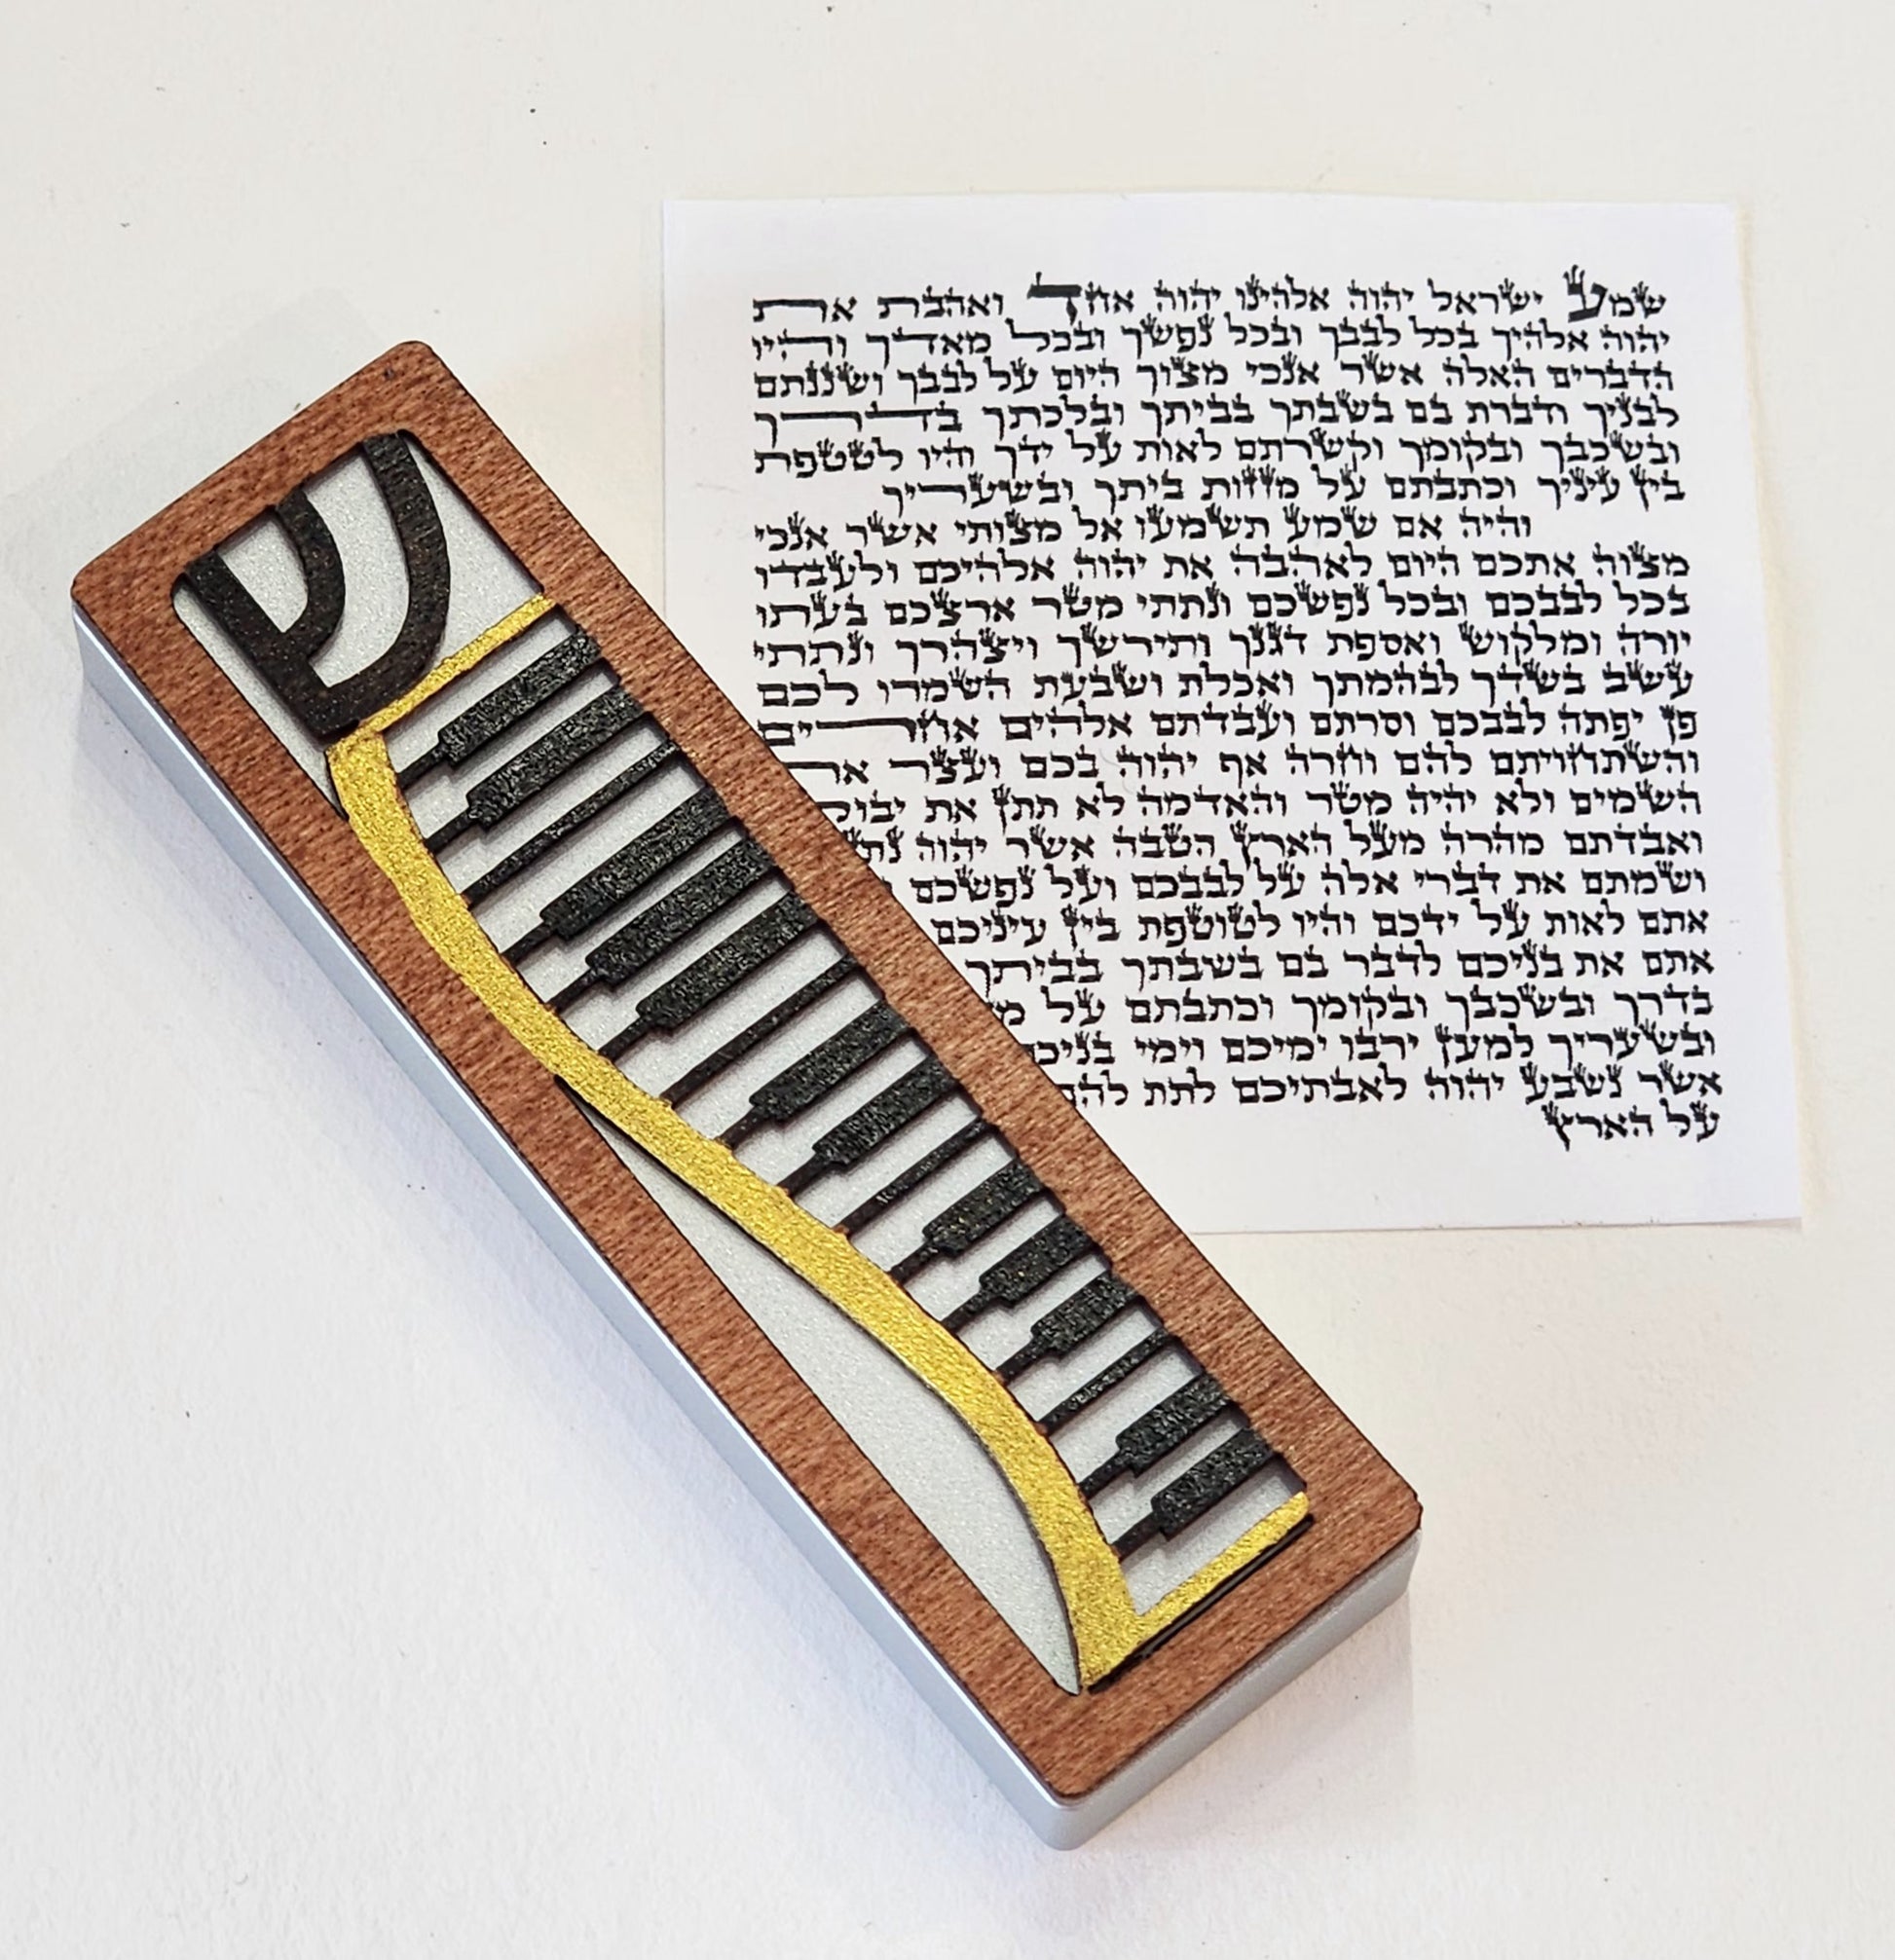 ש
שמע ישראל יהוה אלהינו יהוה אחד ואהבת את
יהוה אלהיך בכל לבבך ובכל נפשך ובכל מאדך והיו
הדברים האלה אשר אנכי מצוך היום על לבבך ושננתם
לבניך ודברת בם בשבתך בביתך ובלכתך בדרך
ובשכבך ובקומך וקשרתם לאות על ידך והיו לטטפת
בין עיניך וכתבתם על מזזות ביתך ובשעריך
והיה אם שמע תשמעו אל מצותי אשר אנכי
מצוה אתכם היום לאהבה את יהוה אלהיכם ולעבדו
בכל לבבכם ובכל נפשכם ונתתי מטר ארצכם בעתו
יורה ומלקוש ואספת דגנך ותירשך ויצהרך ונתתי
עשב בשדך לבהמתך ואכלת ושבעת השמרו לכם
פן יפתה לבבכם וסרתם ועבדתם אלהים אחרים
והשתחויתם להם וחרה אף יהוה בכם ועצר את
השמים ולא יהיה מטר והאדמה לא תתן את יבול
ואבדתם מהרה מעל הארץ הטבה אשר יהוה נת
ושמתם את דברי אלה על לבבכם ועל נפשכם
אתם לאות על ידכם והיו לטוטפת בין עיניכם
אתם את בניכם לדבר בם בשבתך בביתך
בדרך ובשכבך ובקומך וכתבתם על מ
ובשעריך למען ירבו ימיכם וימי בניכ
אשר נשבע יהוה לאבתיכם לתת להם
על הארץ